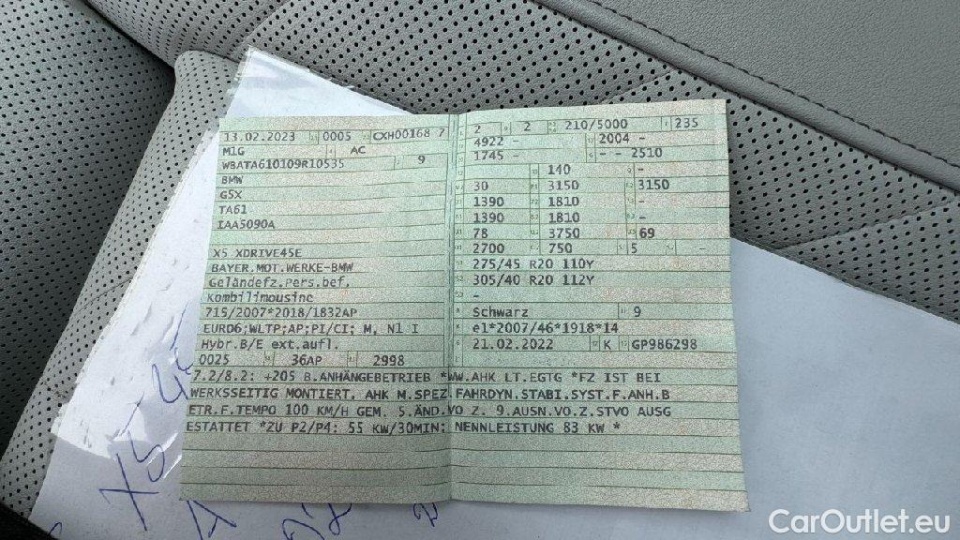 13.02.2023 0005 CXH00168 7
M1G AC
WBATA610109R10535 9
BMW
G5X
TA61
IAA5090A
X5 XDRIVE45E
BAYER.MOT.WERKE-BMW
Geländefz.Pers.bef.
Kombilimousine
715/2007*2018/1832AP
EURO6;WLTP;AP;PI/CI; M, N1 I
Hybr.B/E ext.aufl.
0025 36AP 2998
2 2 210/5000 235
4922 - 2004 -
1745 - - - 2510
140 -
30 3150 3150
1390 1810 -
1390 1810 -
78 3750 69
2700 750 5
275/45 R20 110Y
305/40 R20 112Y
-
Schwarz 9
e1*2007/46*1918*14
21.02.2022 K GP986298
7.2/8.2: +205 B.ANHÄNGEBETRIEB *WW.AHK LT.EGTG *FZ IST BEI
WERKSSEITIG MONTIERT. AHK M.SPEZ.FAHRDYN.STABI.SYST.F.ANH.B
ETR.F.TEMPO 100 KM/H GEM. 5.ÄND.VO Z. 9.AUSN.VO.Z.STVO AUSG
ESTATTET *ZU P2/P4: 55 KW/30MIN; NENNLEISTUNG 83 KW *
CarOutlet.eu